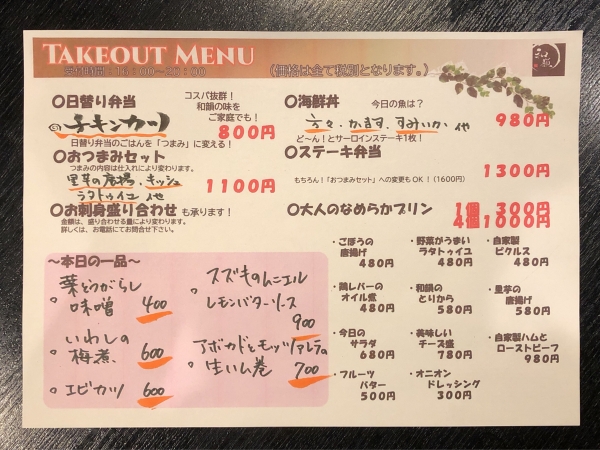 TAKEOUT MENU
受付時間:16:00〜20:00
(価格は全て税別となります。)
和韻
○日替り弁当
コスパ抜群!
和韻の味を
ご家庭でも!
チキンカツ
800円
日替り弁当のごはんを「つまみ」に変える!
○おつまみセット
つまみの内容は仕入れにより変わります。
里芋の唐揚、キッシュ
ラタトゥイユ 他
1100円
○お刺身盛り合わせ も承ります!
金額は、盛り合わせる量により変わります。
詳しくは、お電話にてお問合せ下さい。
○海鮮丼
今日の魚は?
かます、すみいか 他
980円
ど〜ん!とサーロインステーキ1枚!
○ステーキ弁当
1300円
もちろん!「おつまみセット」への変更もOK!(1600円)
○大人のなめらかプリン
1個 300円
4個1000円
〜本日の一品〜
葉とうがらし
味噌 400
いわしの
梅煮、 600
エビカツ 600
スズキのムニエル
レモンバターソース
900
アボカドとモッツァレラの
生ハム巻 700
・ごぼうの
唐揚げ
480円
・鶏レバーの
オイル煮
480円
・今日の
サラダ
680円
・フルーツ
バター
500円
・野菜がうまい
ラタトゥイユ
480円
・和韻の
とりから
580円
・美味しい
チーズ盛
780円
・オニオン
ドレッシング
300円
・自家製
ピクルス
480円
・里芋の
唐揚げ
580円
・自家製ハムと
ローストビーフ
980円